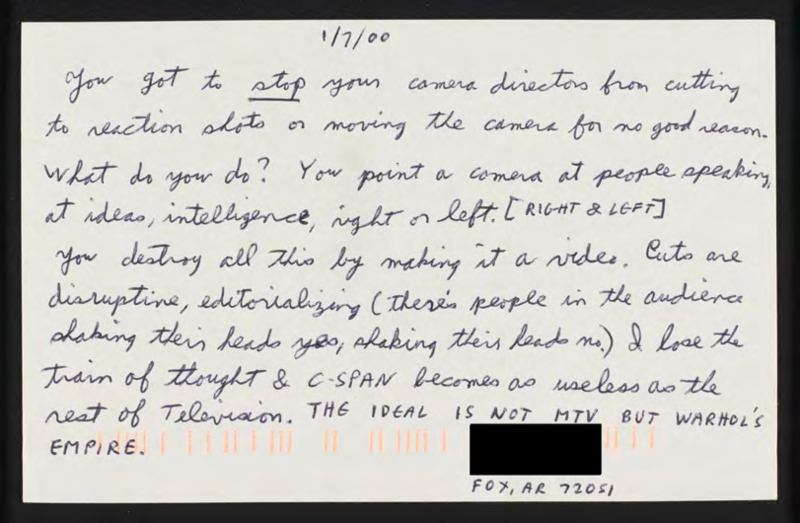 1/7/00
You got to stop your camera directors from cutting
to reaction shots or moving the camera for no good reason.
What do you do? You point a camera at people speaking,
at ideas, intelligence, right or left. [RIGHT & LEFT]
You destroy all this by making it a video. Cuts are
disruptive, editorializing (there's people in the audience
shaking their heads yes, shaking their heads no.) I lose the
train of thought & C-SPAN becomes as useless as the
rest of Television. THE IDEAL IS NOT MTV BUT WARHOL'S
EMPIRE.
FOX, AR 72051